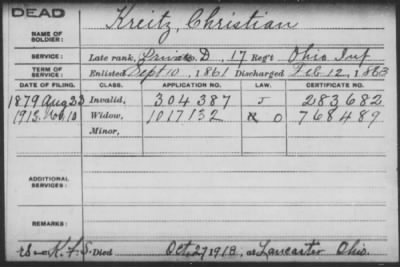 DEAD
NAME OF SOLDIER: Kreitz, Christian
SERVICE: Late rank, Private D, 17 Reg't Ohio Inf
TERM OF SERVICE: Enlisted Sept 10, 1861 Discharged Feb 12, 1863
DATE OF FILING. CLASS. APPLICATION NO. LAW. CERTIFICATE NO.
1879 Aug 23 Invalid, 304387 J 283682
1918. Nov 10 Widow, 1017132 O 768489
Minor,
ADDITIONAL SERVICES:
REMARKS:
Died Oct. 27 1918, at Lancaster Ohio.